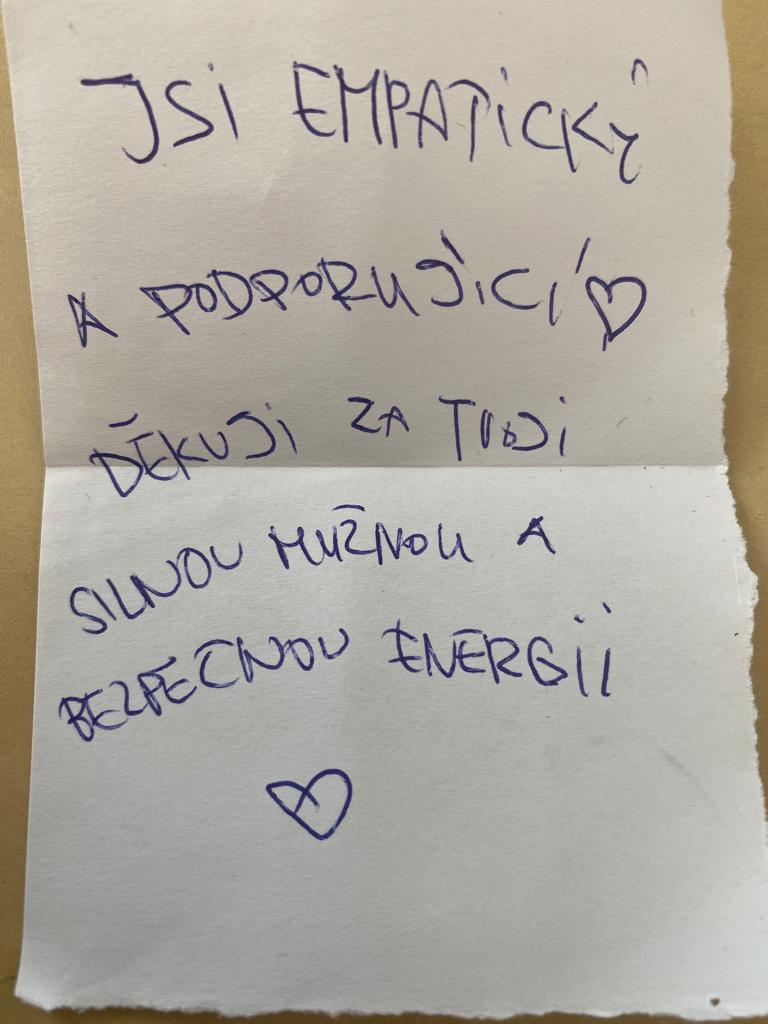 JSI EMPATICKÝ
A PODPORUJÍCÍ ♡
DĚKUJI ZA TVOJI
SILNOU MUŽNOU A
BEZPEČNOU ENERGII
♡